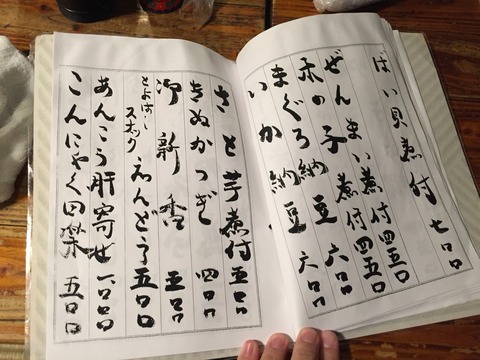 ばい貝煮付 七〇〇
ぜんまい煮付 四五〇
木の子煮付 四五〇
まぐろ納豆 六〇〇
いか納豆 六〇〇
さと芋煮付 五〇〇
きぬかつぎ 四〇〇
御新香 五〇〇
とよはし
スナック
えんどう 五〇〇
あんこう肝寄せ 一〇〇〇
こんにゃく田楽 五〇〇